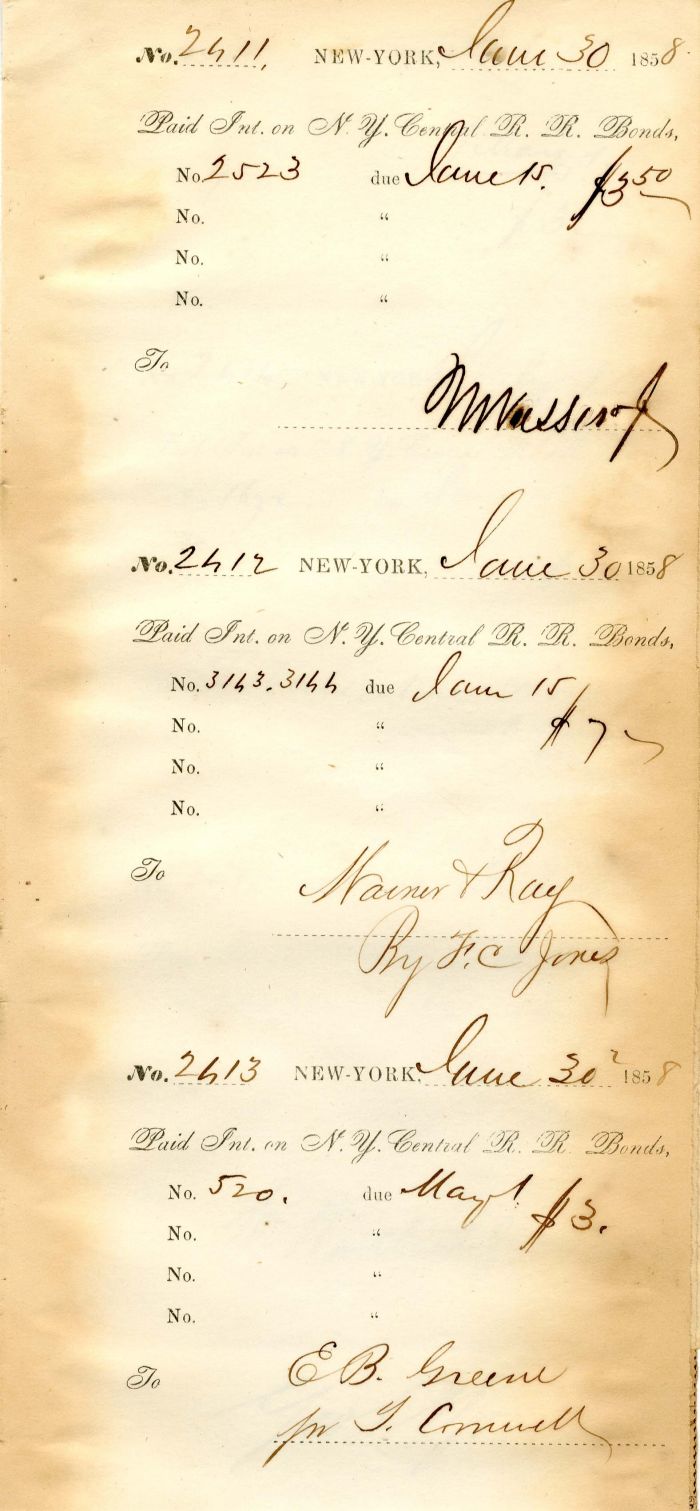 No. 2411. NEW-YORK, June 30 1858.
Paid Int. on N. Y. Central R. R. Bonds,
No. 2523 due June 15. $3 50
No. "
No. "
No. "
To
M Vassar Jr
No. 2412 NEW-YORK, June 30 1858
Paid Int. on N. Y. Central R. R. Bonds,
No. 3143. 3144 due June 15
No. " $7
No. "
No. "
To
& Ray
By F. C Jones
No. 2413 NEW-YORK, June 30 1858
Paid Int. on N. Y. Central R. R. Bonds,
No. 520. due May 1 $3.
No. "
No. "
No. "
To
E B. Greene
pr T. Cornwell